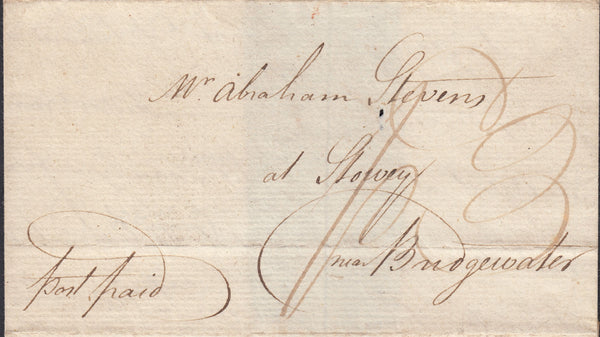 Mr Abraham Stevens
at Stowey
near Bridgewater
post paid